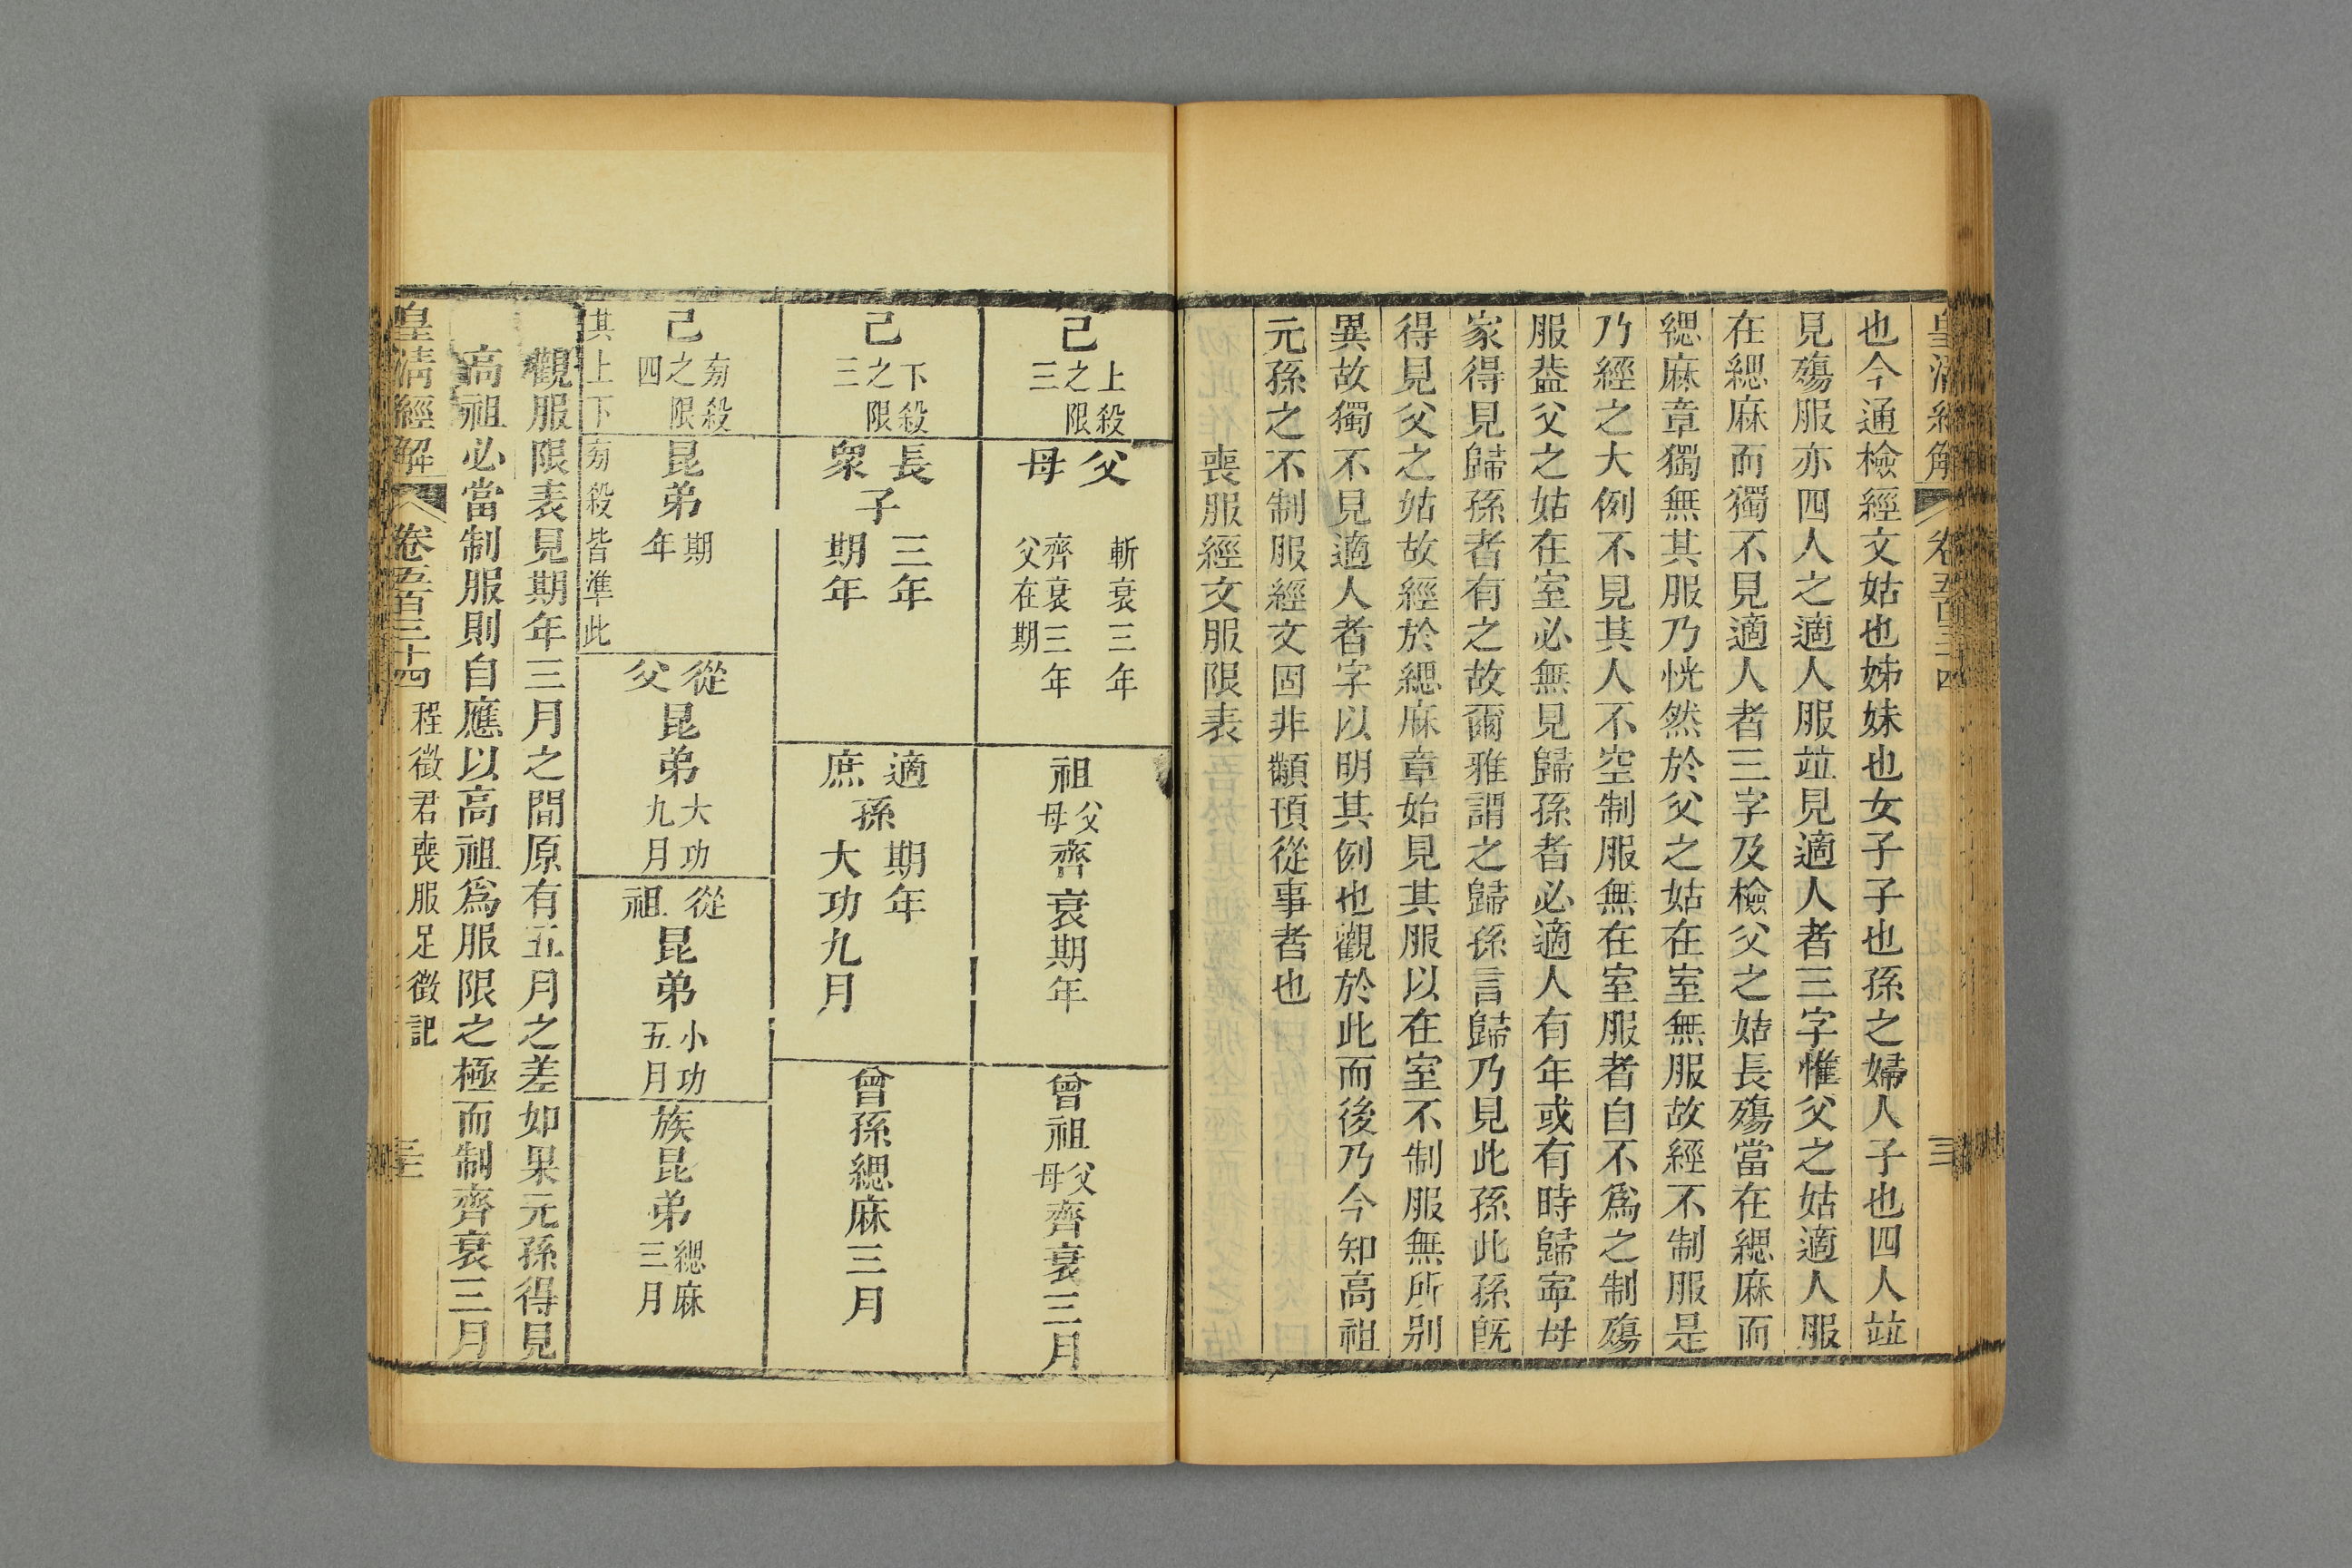 皇清經解
卷五百三十四
三
也今通檢經文姑也姊妹也女子子也孫之婦人子也四人竝
見殤服亦四人之適人服竝見適人者三字惟父之姑適人服
在緦麻而獨不見適人者三字及檢父之姑長殤當在緦麻而
緦麻章獨無其服乃恍然於父之姑在室無服故經不制服是
乃經之大例不見其人不空制服無在室服者自不爲之制殤
服葢父之姑在室必無見歸孫者必適人有年或有時歸寧母
家得見歸孫者有之故爾雅謂之歸孫言歸乃見此孫此孫旣
得見父之姑故經於緦麻章始見其服以在室不制服無所别
異故獨不見適人者字以明其例也觀於此而後乃今知高祖
元孫之不制服經文固非顢頇從事者也
喪服經文服限表
己
上殺
三之限
父母
斬衰三年
齊衰三年
父在期
祖父母齊衰期年
曾祖父母齊衰三月
己
下殺
三之限
長子三年
衆子期年
適孫期年
庶孫大功九月
曾孫緦麻三月
己
旁殺
四之限
昆弟
期年
從父昆弟
大功九月
從祖昆弟
小功五月
族昆弟
緦麻三月
其上下旁殺皆準此
觀服限表見期年三月之間原有五月之差如果元孫得見
高祖必當制服則自應以高祖爲服限之極而制齊衰三月
皇清經解
卷五百三十四
程徵君喪服足徵記